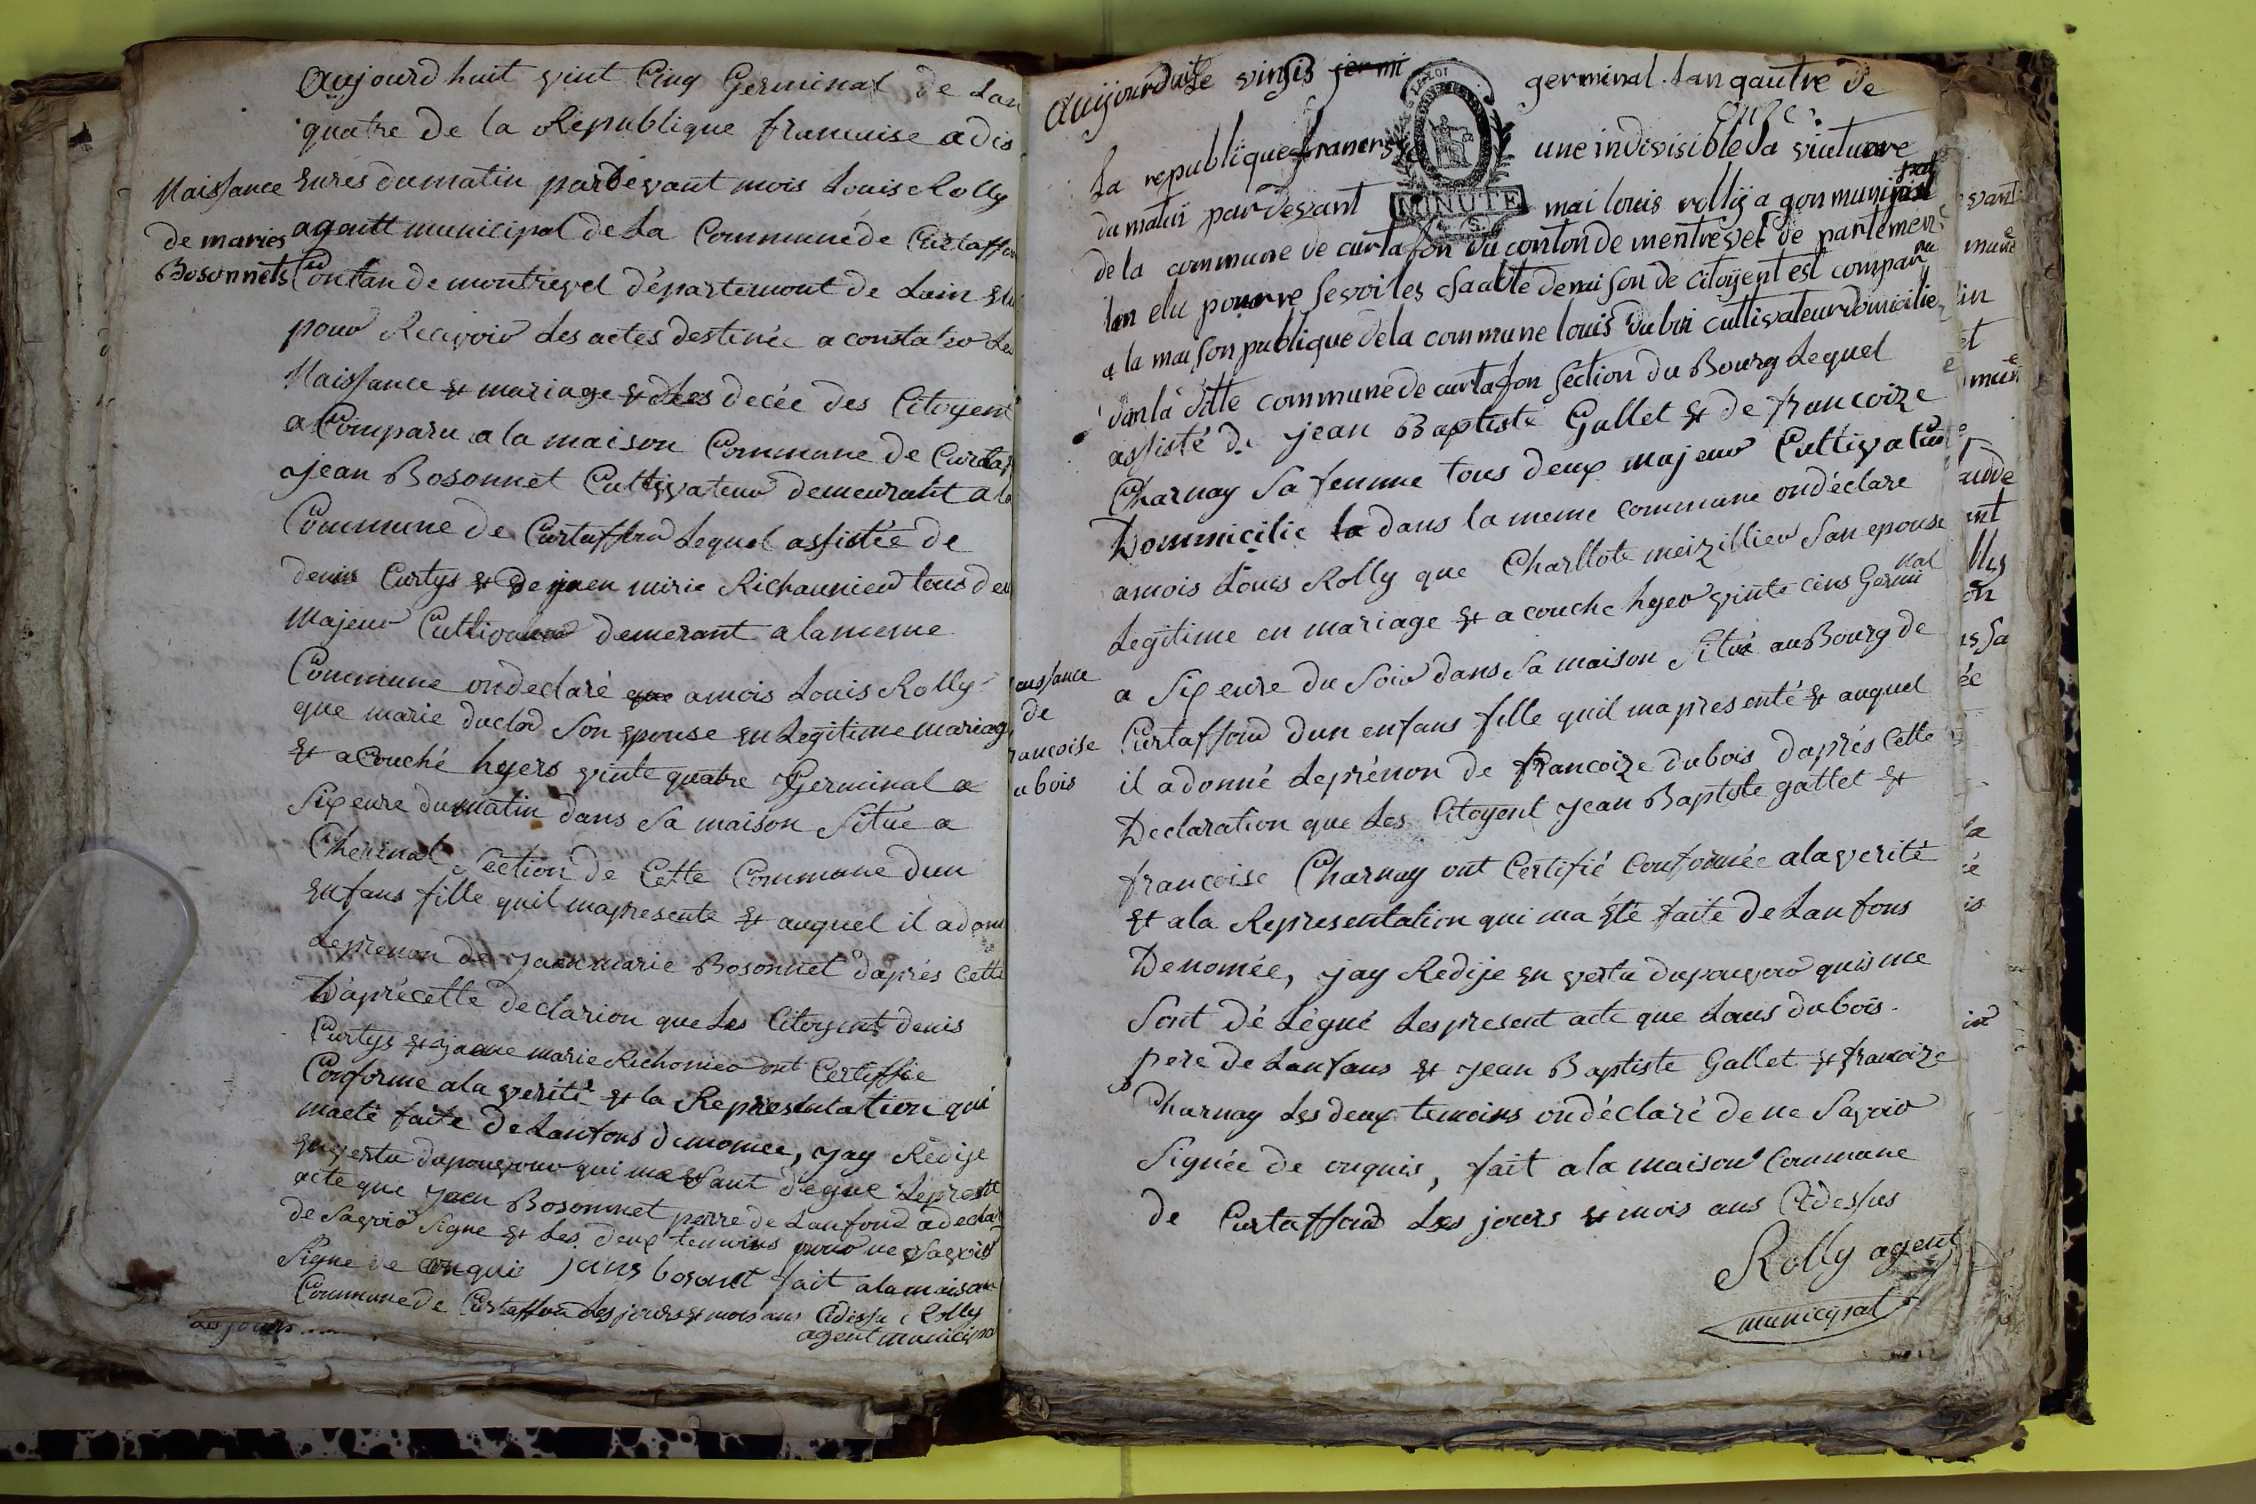 Aujourd huit vint Cinq Germinal de Lan
quatre de la Republique francuise a dis
eures du matin pardevant mois Louis Rolly
agantt municipal de La Commune de Curtaffon
Contan de montrevel départemont de Lain elu
pour Recevoir Les actes destinée a constater Les
Naissance et mariage et des decée des Citoyent
a Comparu a la maison Commune de Curtaf
jean Bosonnet Cultivateur demeurant a la
Commune de Curtaffon Lequel assistée de
denis Curtys et de jaen mirie Richaumier tous deu
Majeur Cultivateur demerant a la meme
Commune on declaré que a mois Louis Rolly
que marie duclod Son epouse en Legitime mariag
et a Couché hyers vinte quatre Germinal a
Six eure du matin dans Sa maison Situé a
Cherinal Section de Cette Commune dun
enfans fille quil mapresente et auquel il a donn
Leprenon de jaen marie Bosonnet daprés Cette
D'aprécette declarion que Les Citoyent denis
Curtys et jaene marie Richomier ont Certiffie
Conforme a la verité et la Represtutation qui
maeté faite de Lanfons denomee, jay Rédije
en vertu dupouvour qui ma Sant dégué Lepresent
acte que jaen Bosonnet perre de Lanfond a declar
de Savoir Signe et Les deux temoins pour ne Savoir
Signe de enquis jans bosonet fait a la maison
Commune de Curtaffon Les jours et mois ans Cidessu Rolly
agent municipal
Les jours
Naissance
de maries
Bosonnets
aujourduit Le vinsis jermi germinal lan gautre de
La republique francis une indivisible a onze
du matin par devant mai louis rollij a gon municipal
de la commune de curtafon du conton de mentrevel de partemen
lan elu pour re sevoi les
a la maison publique de la commune louis dubui cultivateur domicilie
dan la ditte commune de curtafon section du Bourg Lequel
assisté de jean Baptiste Gallet et de francoize
Charnay Sa femme tous deux majeur Cultivateur
Dommicilie la dans la meme commune on déclare
amois Louis Rolly que Charllote meizillier San epouse
Legitime en mariage et a couche hyer vinte cins Germinal
a Six eure du Soir dans Sa maison Situé au Bourg de
Curtaffond dun enfans fille quil mapresenté et auquel
il a donné Leprénon de francoize dubois daprés Cette
Declaration que Les Citoyent jean Baptiste gattet et
francoise Charnay ont Certifié Conformée a la verité
et a la Representation qui ma été faite de Lanfons
Denomée, jay Redije en vertu dupouvoir quis me
Sont délégué Lespresent acte que Louis dubois
pere de Lanfans et jean Baptiste Gallet et francoize
Charnay Les deux temoins on déclaré de ne Savoir
Signée de enquis, fait a la maison Commune
de Curtaffond Les jours et mois ans Cidessus
Rolly agent
municipal
aissance
de
rancoise
ubois
MINUTE